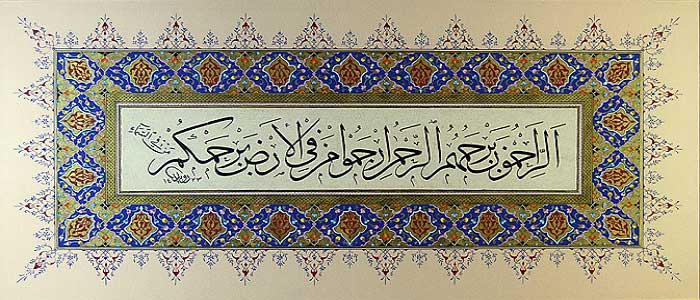 الراحمون يرحمهم الرحمن ارحموا من في الارض يرحمكم
من في السماء